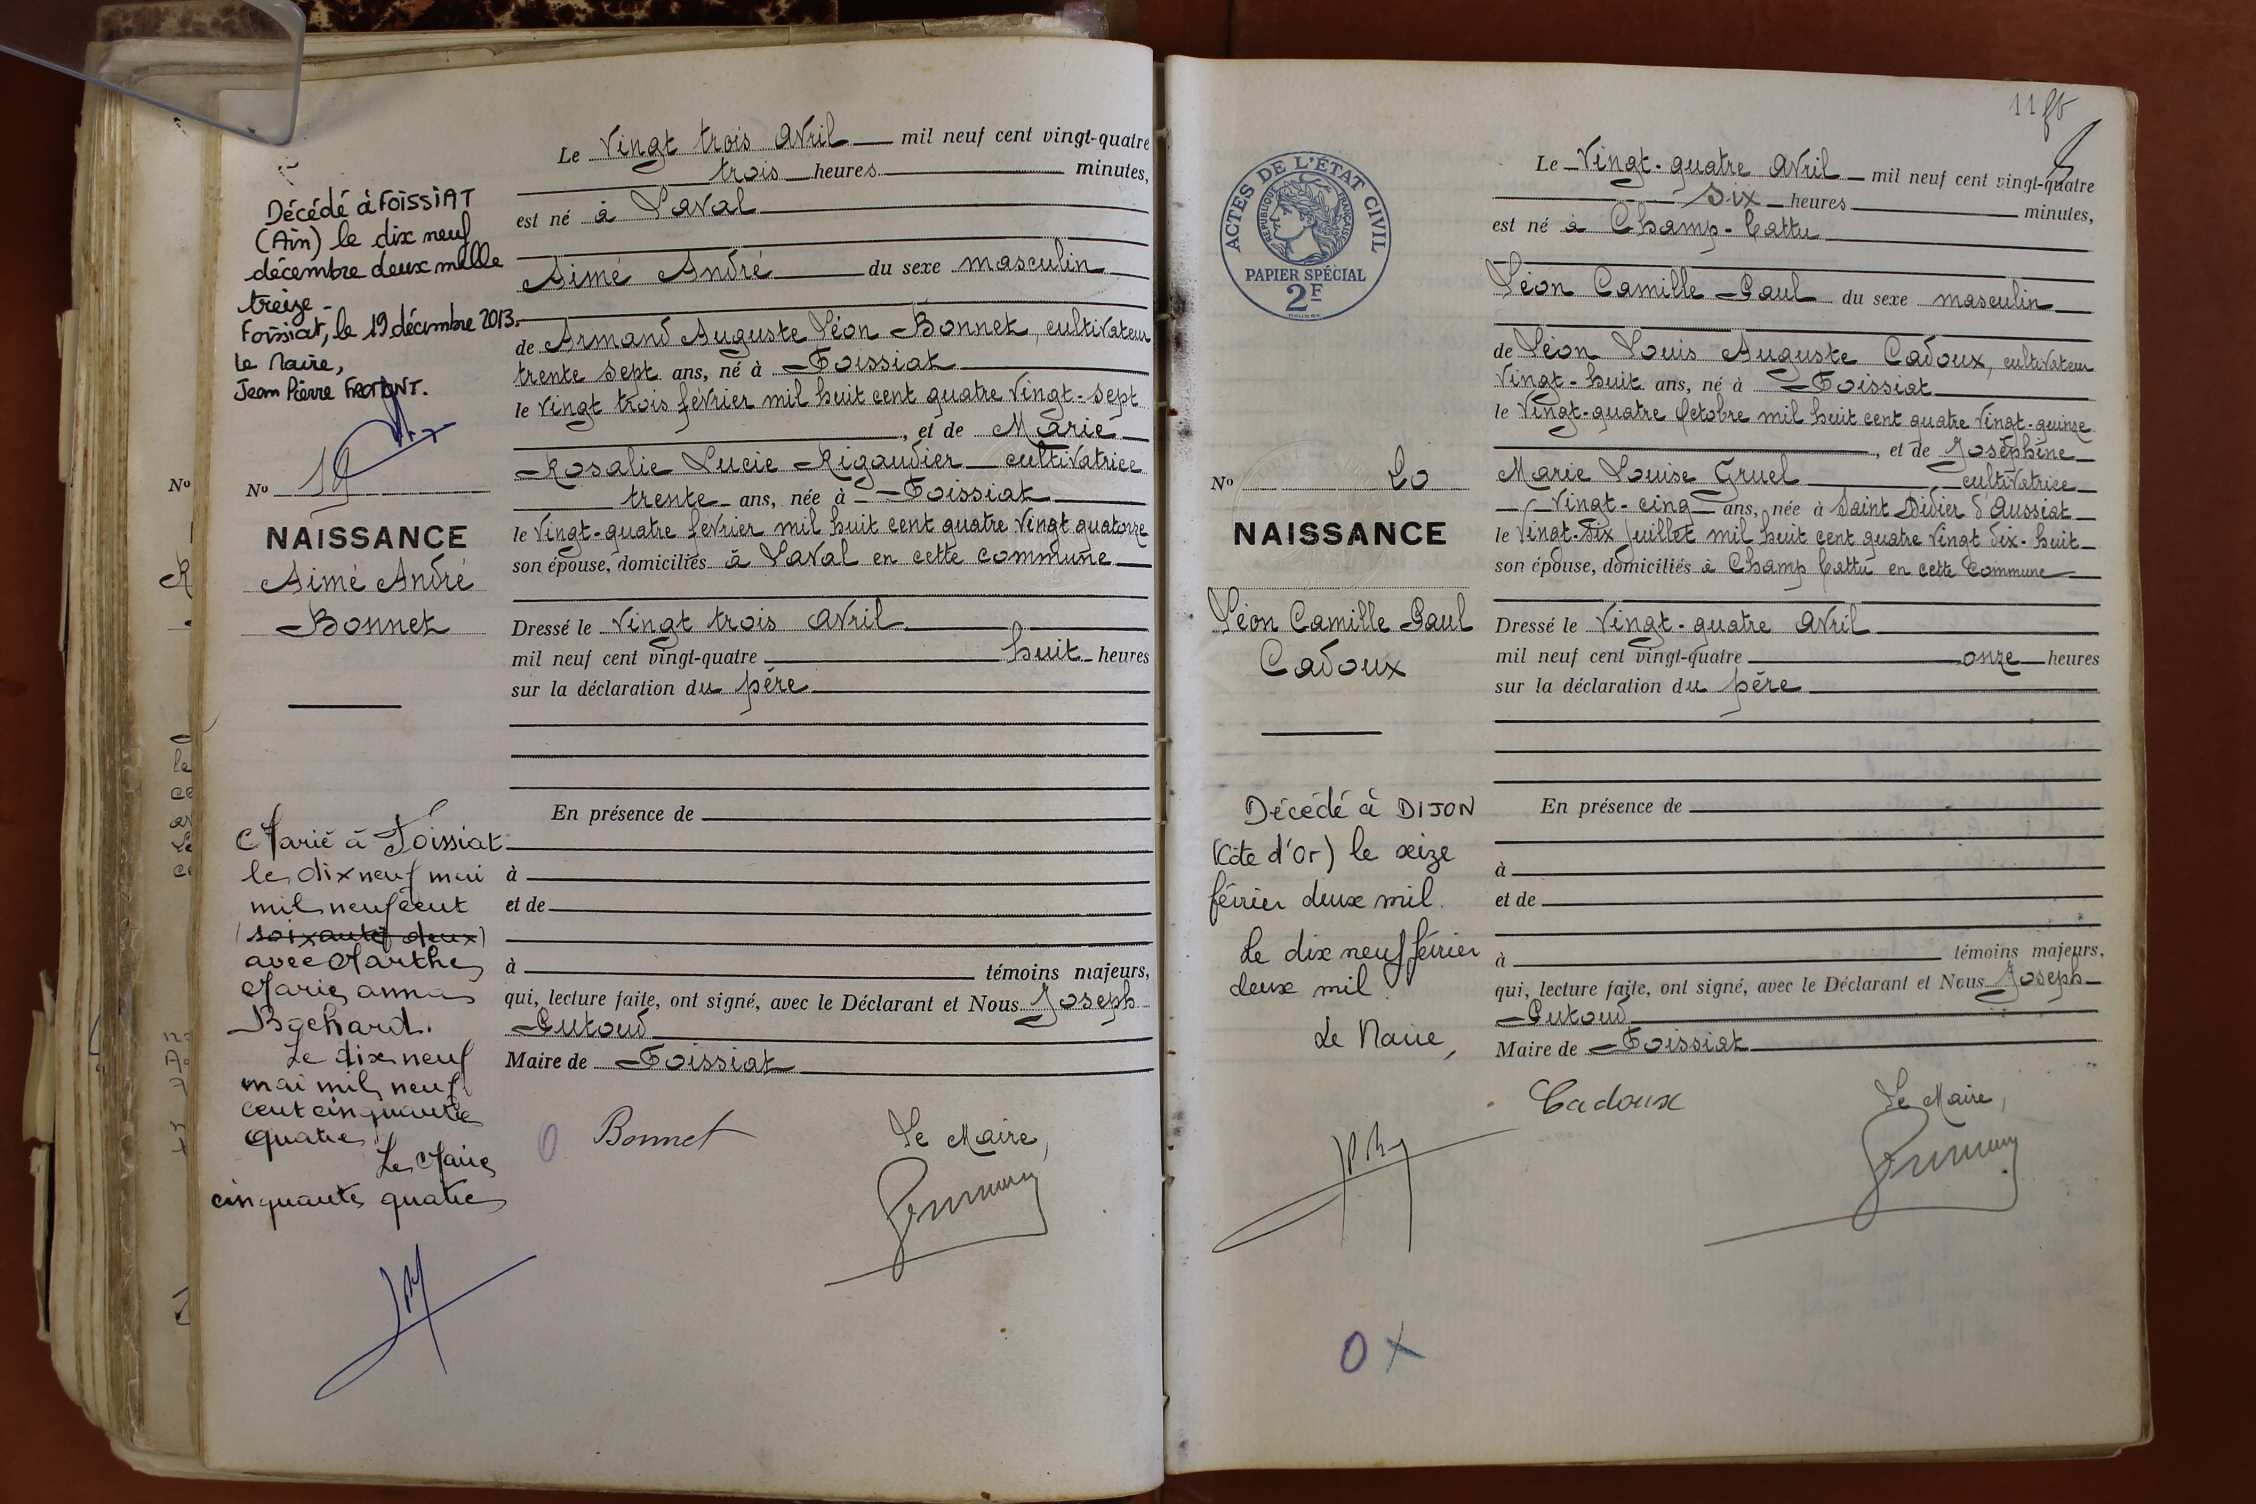 Le Vingt trois Avril mil neuf cent vingt-quatre
trois heures minutes,
est né à Laval
Aimé André du sexe masculin
de Armand Auguste Léon Bonnet, cultivateur
trente sept ans, né à Foissiat
le Vingt trois février mil huit cent quatre Vingt-sept
, et de Marie
Rosalie Lucie Rigaudier cultivatrice
trente ans, née à Foissiat
le Vingt-quatre février mil huit cent quatre Vingt quatorze
son épouse, domiciliés à Laval en cette commune
Dressé le Vingt trois Avril
mil neuf cent vingt-quatre huit heures
sur la déclaration du père
En présence de
à
et de
à témoins majeurs,
qui, lecture faite, ont signé, avec le Déclarant et Nous Joseph
Putoud
Maire de Foissiat
Bonnet Le Maire,
Décédé à FOISSIAT
(Ain) le dix neuf
décembre deux mille
treize -
Foissiat, le 19 décembre 2013.
Le Maire,
Jean Pierre FROMONT.
No 19
NAISSANCE
Aimé André
Bonnet
Marié à Foissiat
le dix neuf mai
mil neuf cent
(soixante deux)
avec Marthe
Marie Anna
Bochard.
Le dix neuf
mai mil neuf
cent cinquante
quatre
Le Maire
cinquante quatre
No
11
Le Vingt-quatre Avril mil neuf cent vingt-quatre
Six heures minutes,
est né à Champ-Cattu
Léon Camille Paul du sexe masculin
de Léon Louis Auguste Cadoux, cultivateur
Vingt-huit ans, né à Foissiat
le Vingt-quatre Octobre mil huit cent quatre Vingt-quinze
, et de Joséphine
Marie Louise Gruel cultivatrice
Vingt-cinq ans, née à Saint Didier d'Aussiat
le Vingt-Six Juillet mil huit cent quatre Vingt dix-huit
son épouse, domiciliés à Champ Cattu en cette Commune
Dressé le Vingt-quatre Avril
mil neuf cent vingt-quatre onze heures
sur la déclaration du père
En présence de
à
et de
à témoins majeurs,
qui, lecture faite, ont signé, avec le Déclarant et Nous Joseph
Putoud
Maire de Foissiat
Cadoux Le Maire,
ACTES DE L'ÉTAT CIVIL
RÉPUBLIQUE FRANÇAISE
PAPIER SPÉCIAL
2F
No 20
NAISSANCE
Léon Camille Paul
Cadoux
Décédé à DIJON
(Côte d'Or) le seize
février deux mil.
Le dix neuf février
deux mil.
Le Maire,